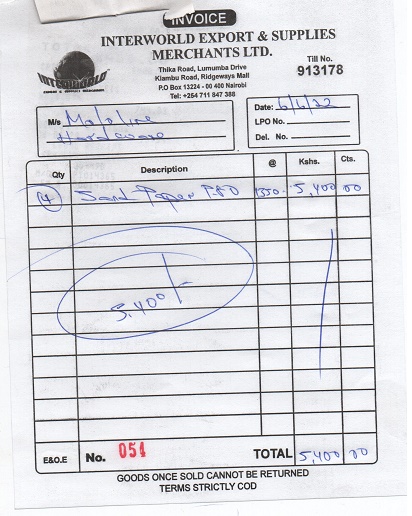 INVOICE
INTERWORLD EXPORT & SUPPLIES
MERCHANTS LTD.
INTERWORLD
Thika Road, Lumumba Drive
Kiambu Road, Ridgeways Mall
P.O Box 13224 - 00 400 Nairobi
Tel: +254 711 847 388
Till No.
913178
M/s Mololine
Hardware
Date: 6/6/22
LPO No.
Del. No.
Qty Description @ Kshs. Cts.
(4) Sand Paper P.80 1350- 5,400 00
5,400/-
E&O.E No. 054 TOTAL 5,400 00
GOODS ONCE SOLD CANNOT BE RETURNED
TERMS STRICTLY COD